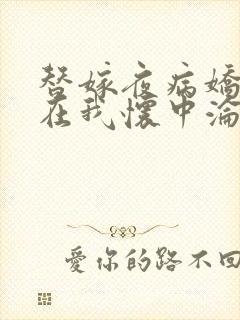 替嫁夜病嬌
在我懷中淪
愛你的路不回